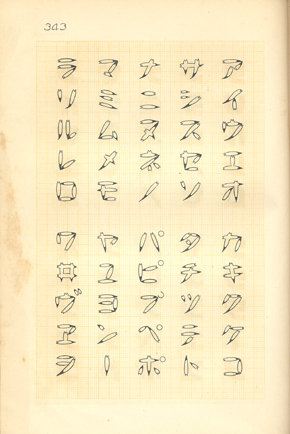 343
アイウエオ
カキクケコ
サシスセソ
タチツテト
ナニヌネノ
パピプペポ
マミムメモ
ヤユヨンー
ラリルレロ
ワヰヴヱヲ